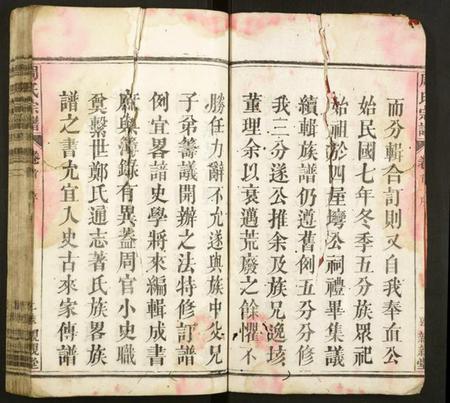 而分輯合訂則又自我奉血公
始民國七年冬季五分族眾祀
始祖於四屋塆公祠禮畢集議
續輯族譜仍遵舊例五分分修
我二分遂公推余及族兄逸垓
董理余以衰邁荒廢之餘懼不
勝任力辭不允遂與族中父兄
子弟籌議開辦之法特修訂譜
例宜畧譜史學將來編輯成書
庶與簿錄有異蓋周官小史職
奠繫世鄭氏通志著氏族畧族
譜之書尤宜入史古來家傳譜
周氏宗譜
卷首
序